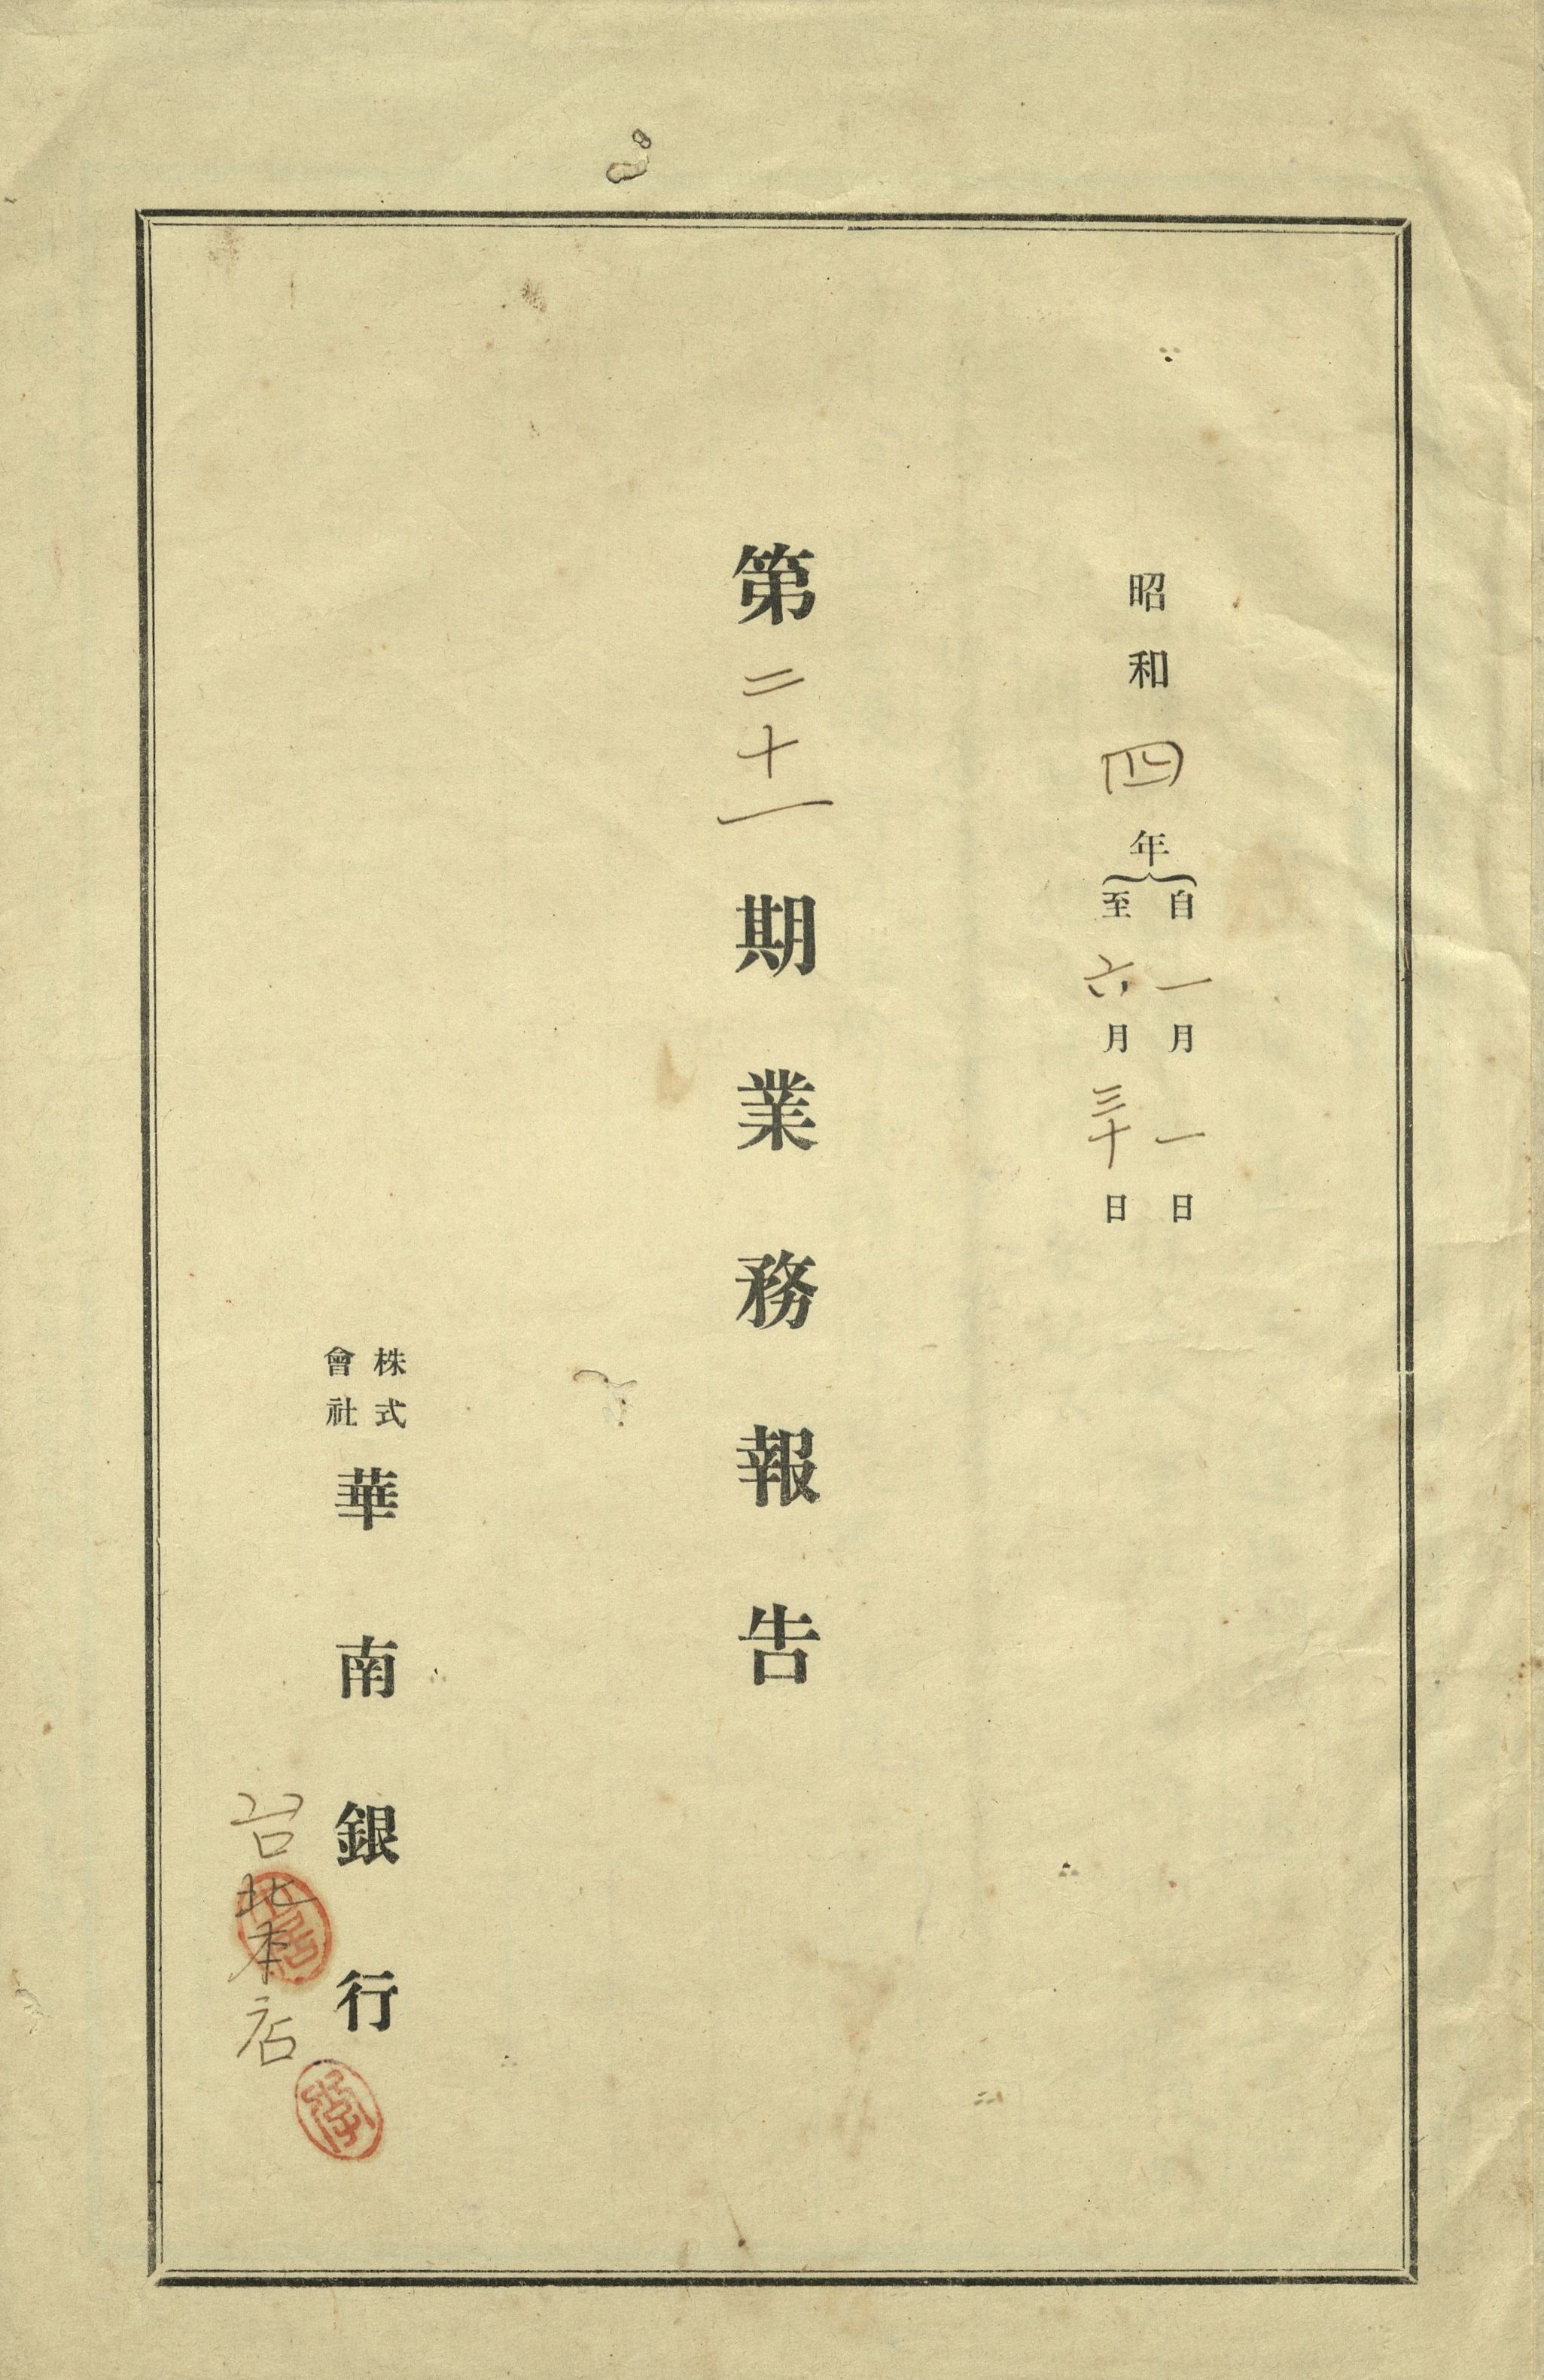 昭和四年
自一月一日
至六月三十日
第二十一期業務報告
株式會社華南銀行
台北本店